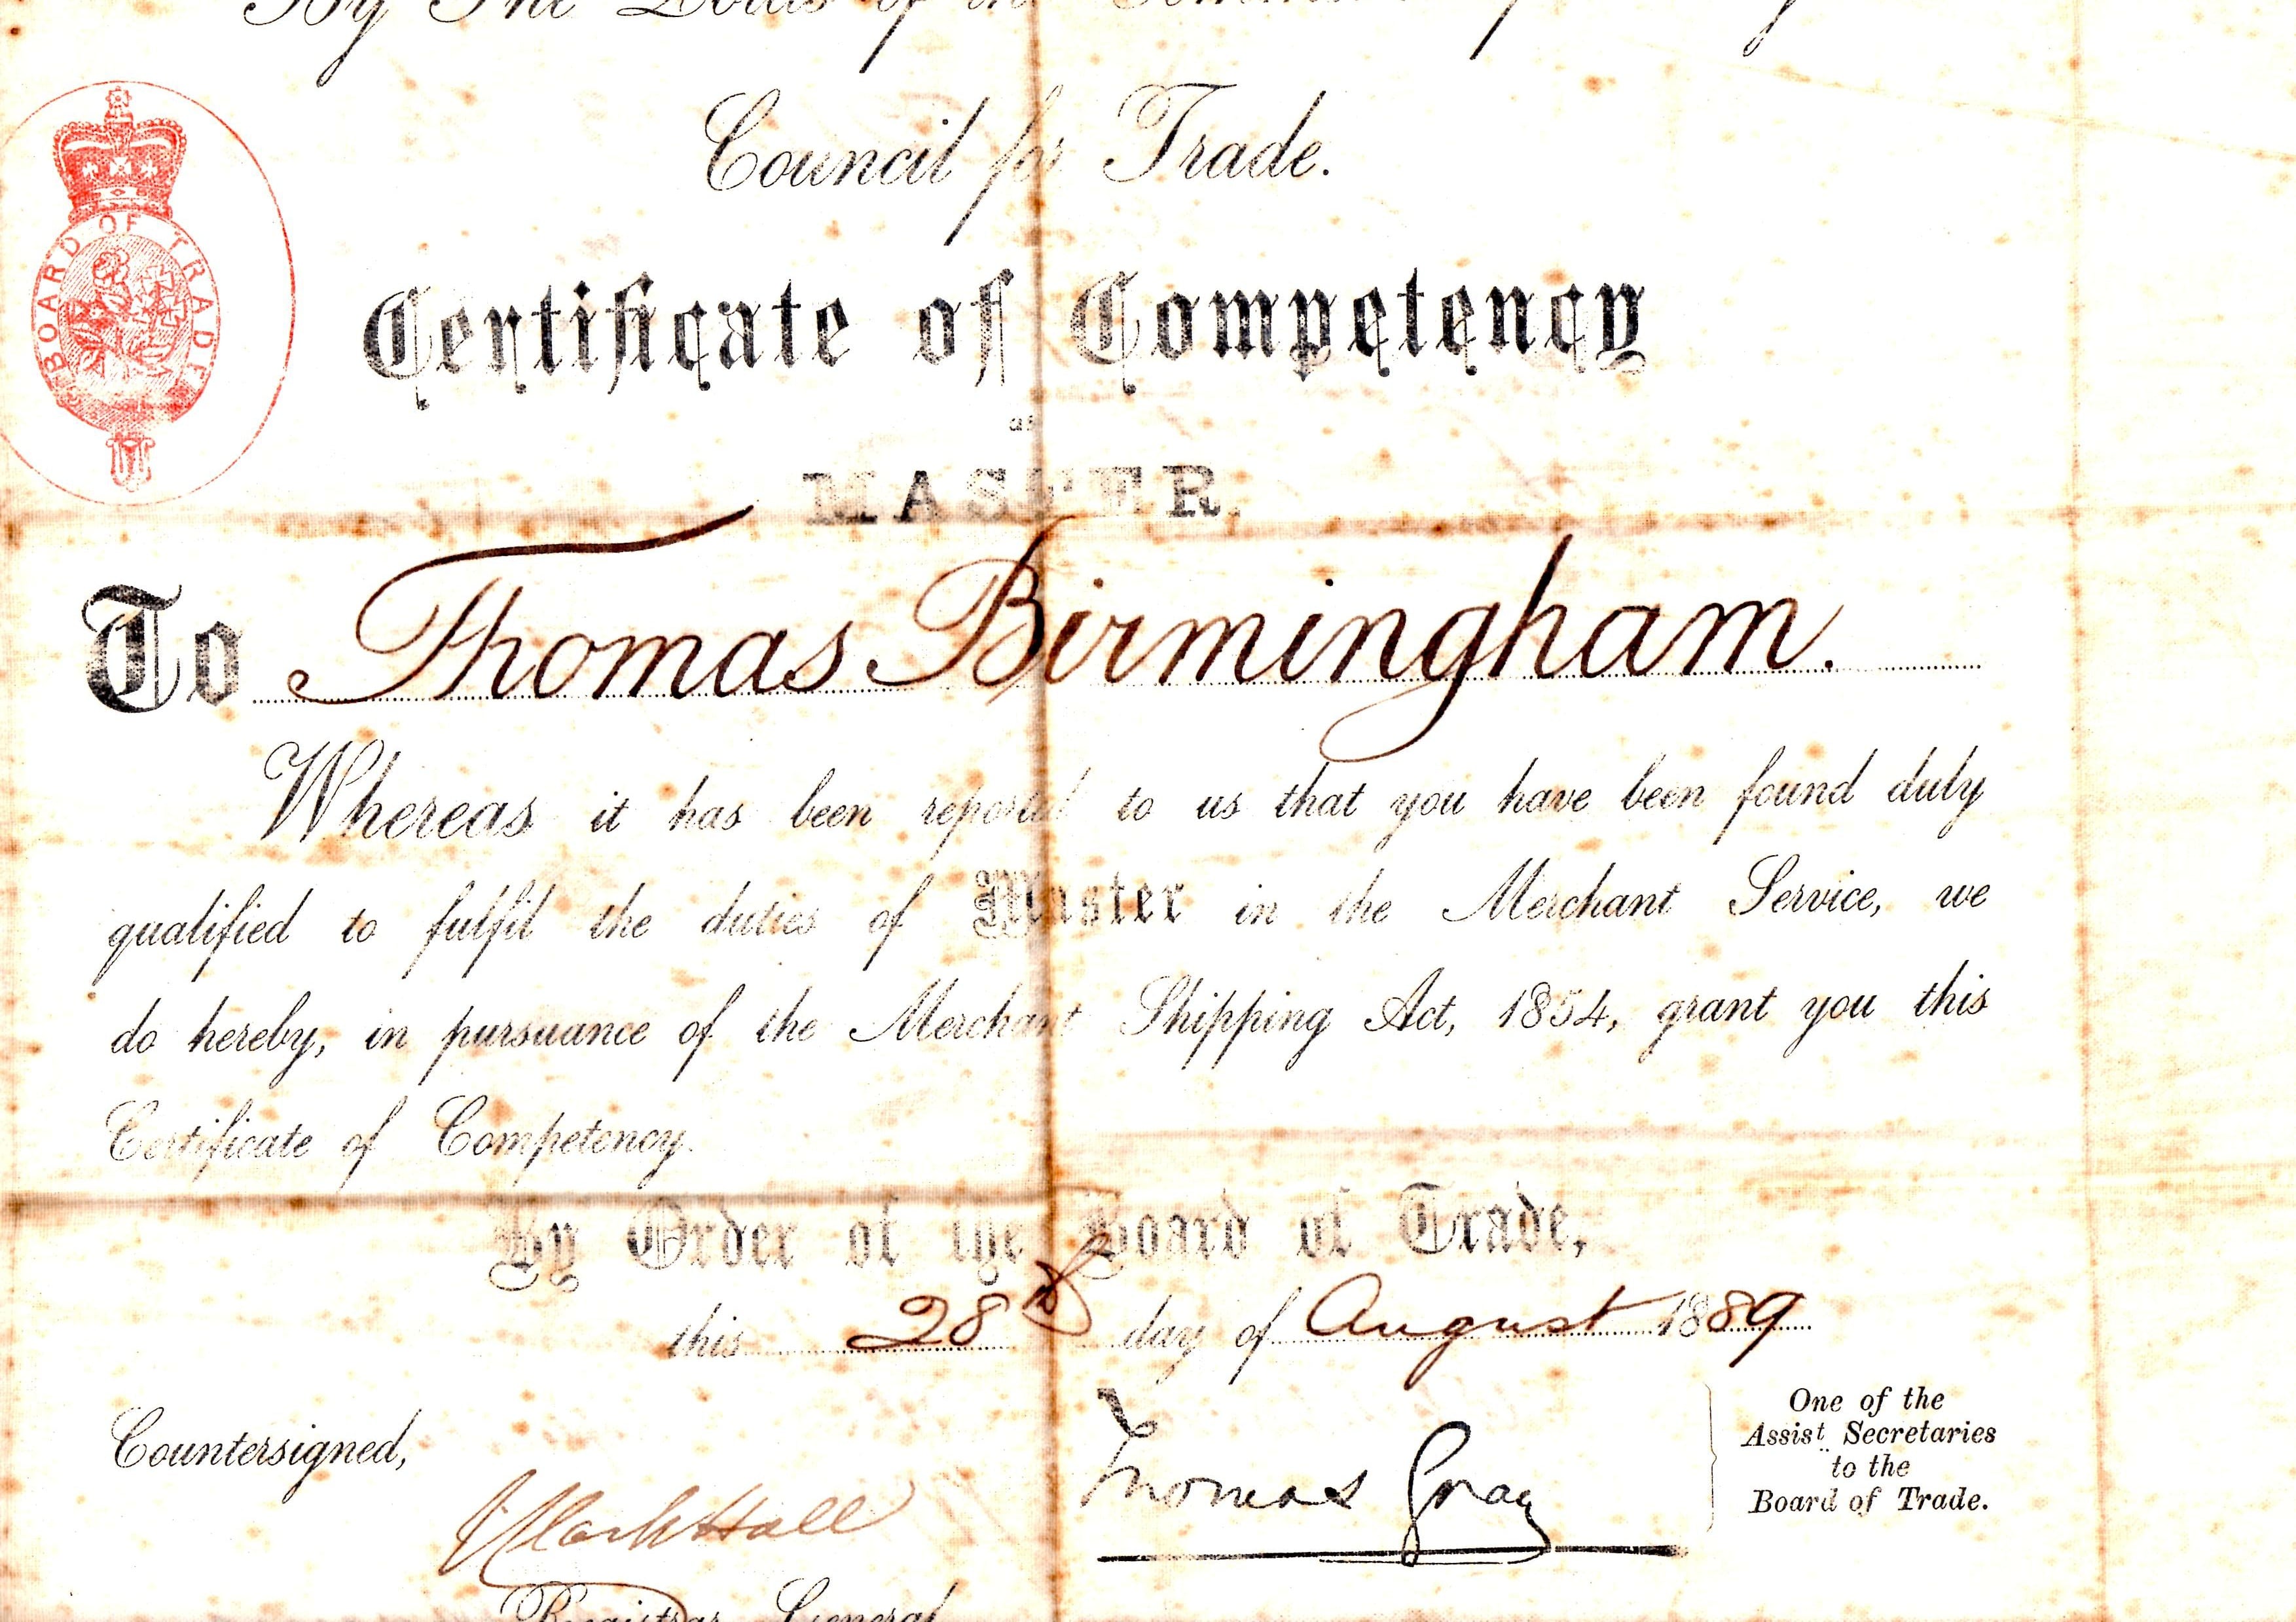 By The Lords of the
Council for Trade.
BOARD OF TRADE
Certificate of Competency
as
MASTER.
To Thomas Birmingham.
Whereas it has been reported to us that you have been found duly
qualified to fulfil the duties of Master in the Merchant Service, we
do hereby, in pursuance of the Merchant Shipping Act, 1854, grant you this
Certificate of Competency.
By Order of the Board of Trade,
this 28th day of August 1889
Countersigned,
Thomas Gray
One of the
Assist Secretaries
to the
Board of Trade.
Registrar General